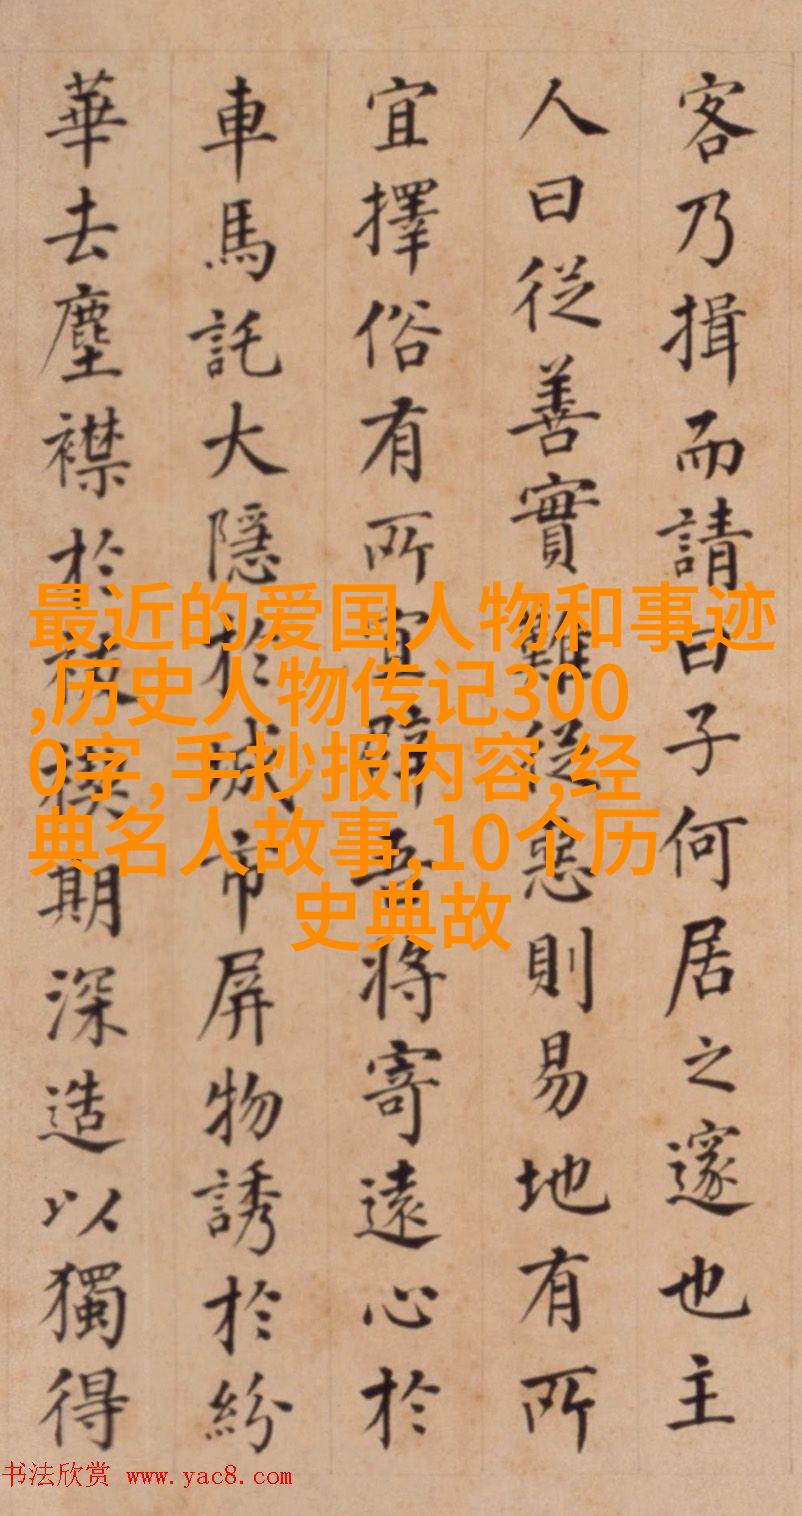 客乃揖而請曰子何居之邃也主
人曰從善實難從惡則易地有所
宜擇俗有所宜辟吾將寄遠心於
車馬託大隱於城市屏物誘於紛
華去塵襟於期深造以獨得
最近的爱国人物和事迹
,历史人物传记300
0字,手抄报内容,经
典名人故事,10个历
史典故
书法欣赏 www.yac8.com